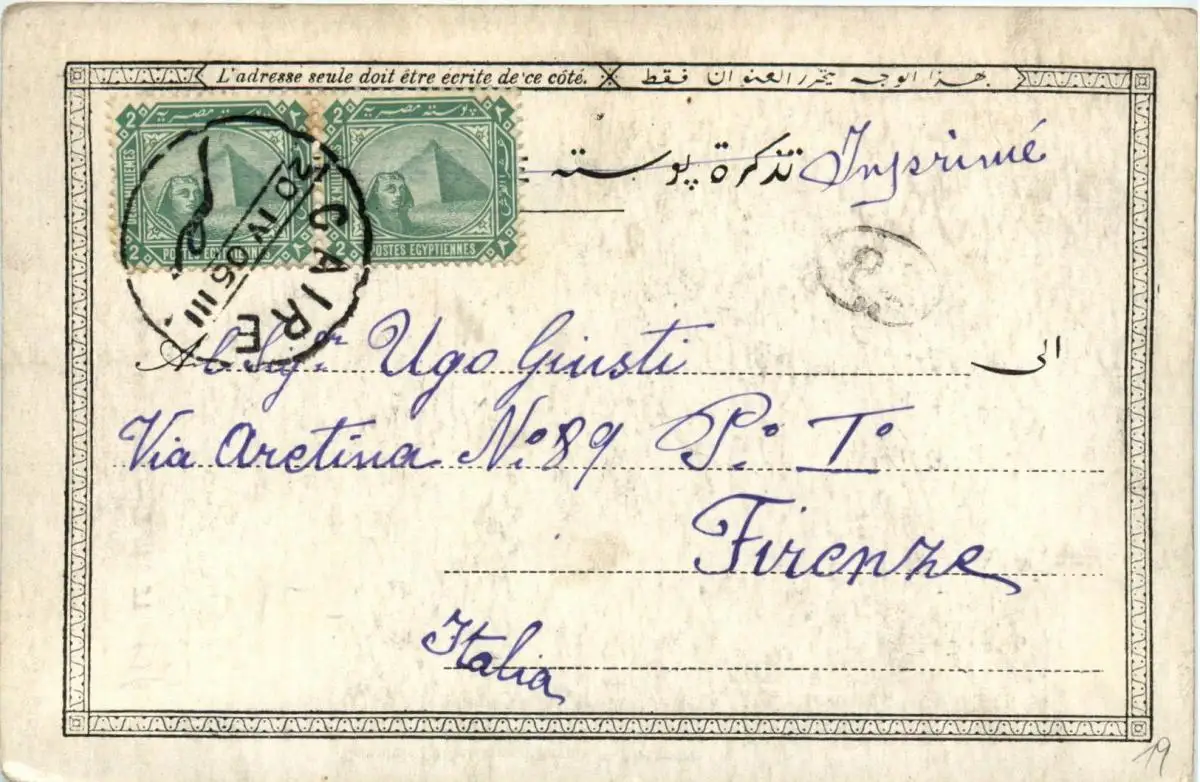 L'adresse seule doit être écrite de ce côté. هذا الوجه يتحرر العنوان فقط
2 بوسته مصريه ٢
2 POSTES EGYPTIENNES ٢
2 بوسته مصريه ٢
2 POSTES EGYPTIENNES ٢
CAIRE
20 IV 05 III
تذكرة بوسته Imprimé
Al Sigr Ugo Giusti الى
Via Aretina No. 89 Po. Io
Firenze
Italia
19